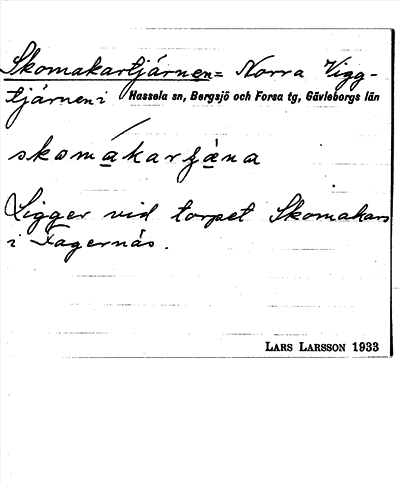 Skomakartjärnen = Norra Vigg-
tjärnen i Hassela sn, Bergsjö och Forsa tg, Gävleborgs län
skomakar
Ligger vid torpet Skomakars
i Fagernäs.
LARS LARSSON 1933